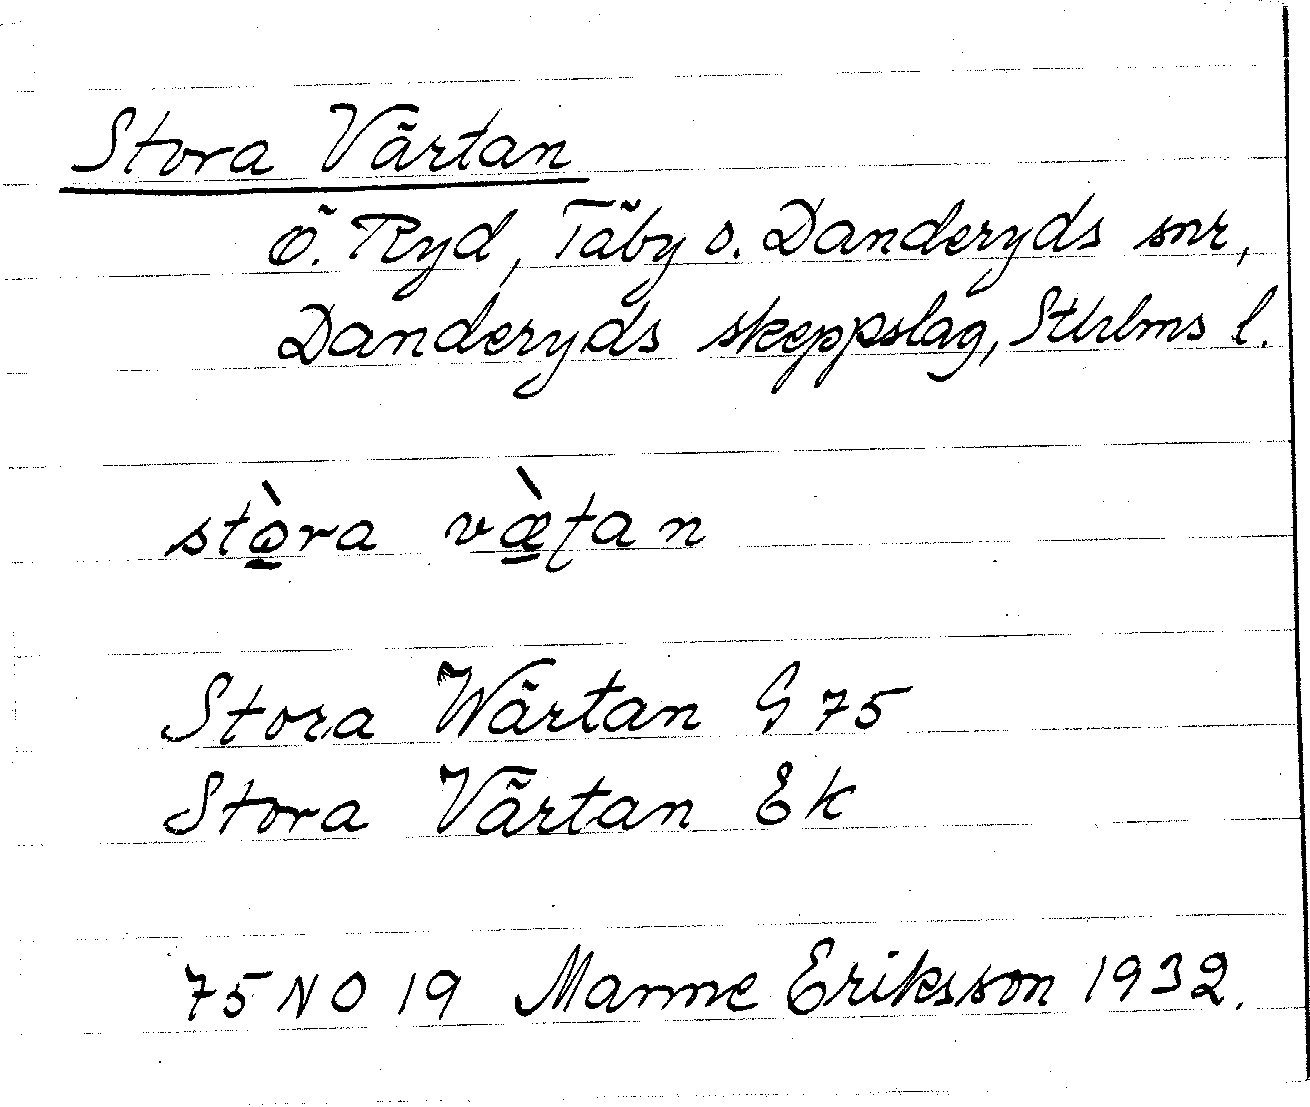 Stora Värtan
Ö. Ryd, Täby o. Danderyds snr,
Danderyds skeppslag, Sthlms l.
stɷ̀ra væ̀ʈan
Stora Wärtan G 75
Stora Värtan Ek
75 NO 19 Manne Eriksson 1932.